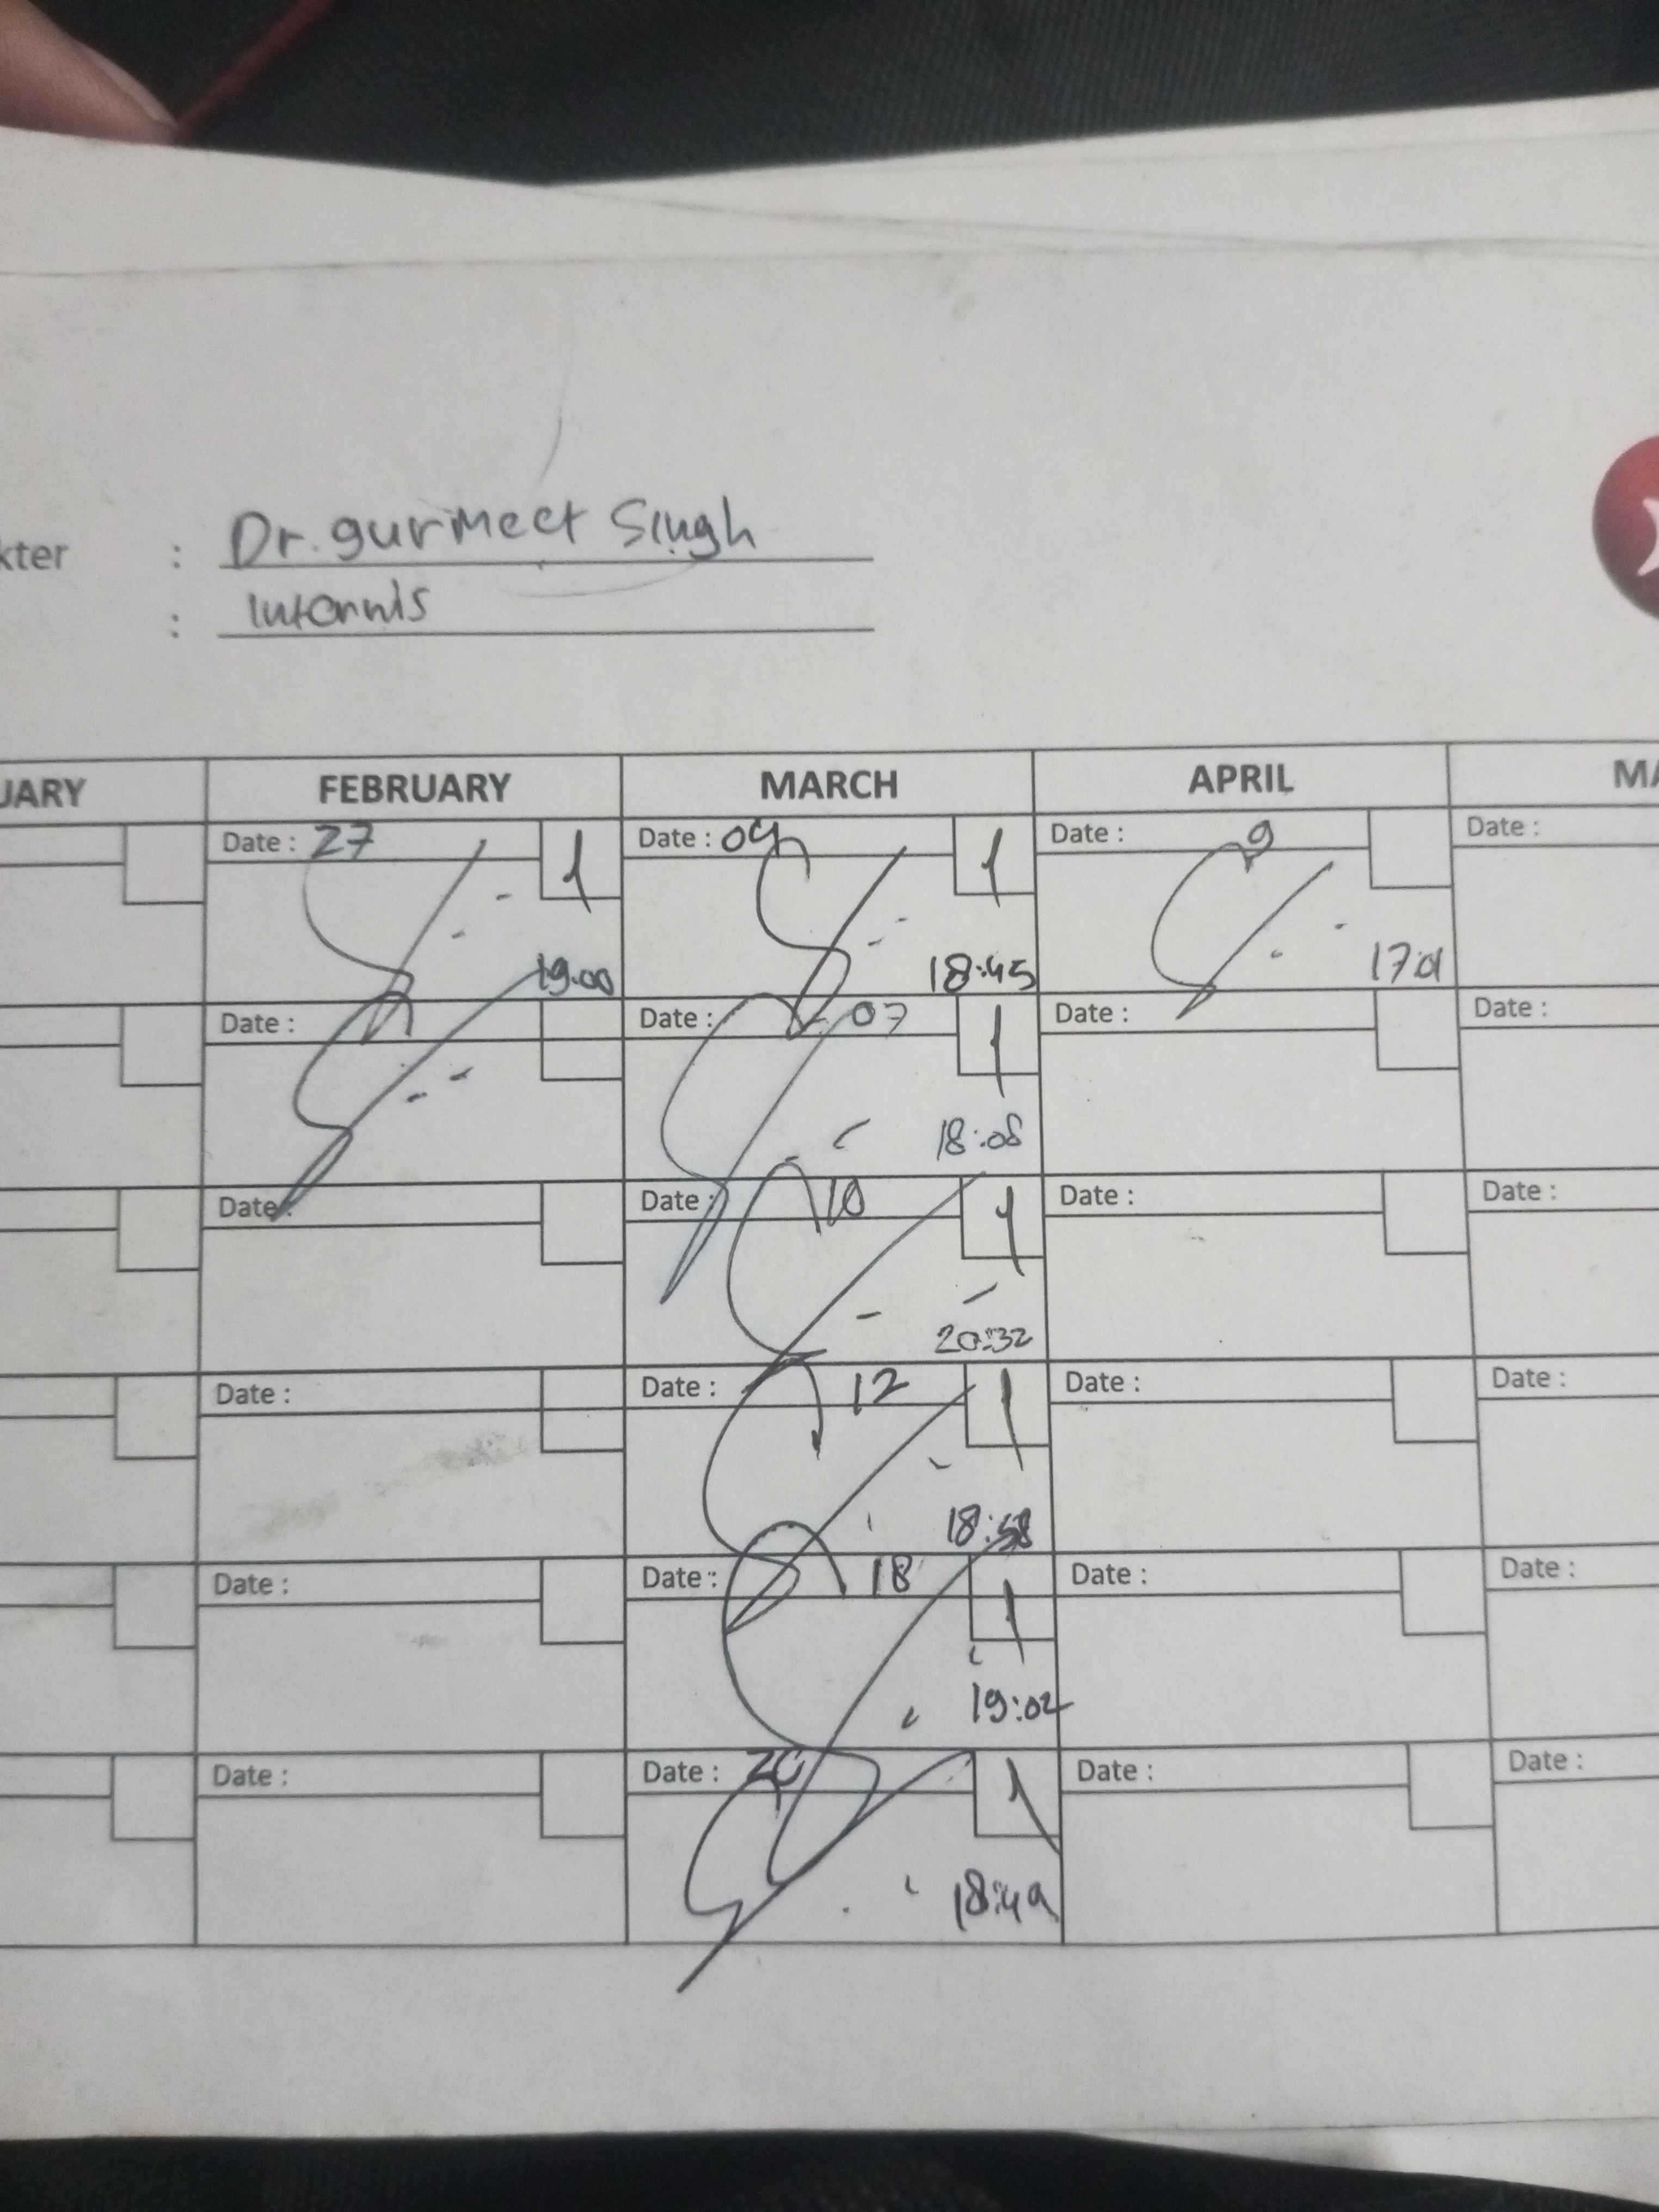 kter : Dr. gurmeet Singh
: Internis
UARY FEBRUARY MARCH APRIL MA
Date : 27 1 Date : 04 1 Date : 9 Date :
19.00 18:45 17:01
Date : Date : 07 1 Date : Date :
18:08
Date : Date : 10 1 Date : Date :
20:32
Date : Date : 12 1 Date : Date :
18:58
Date : Date : 18 1 Date : Date :
19:02
Date : Date : 20 1 Date : Date :
18:49